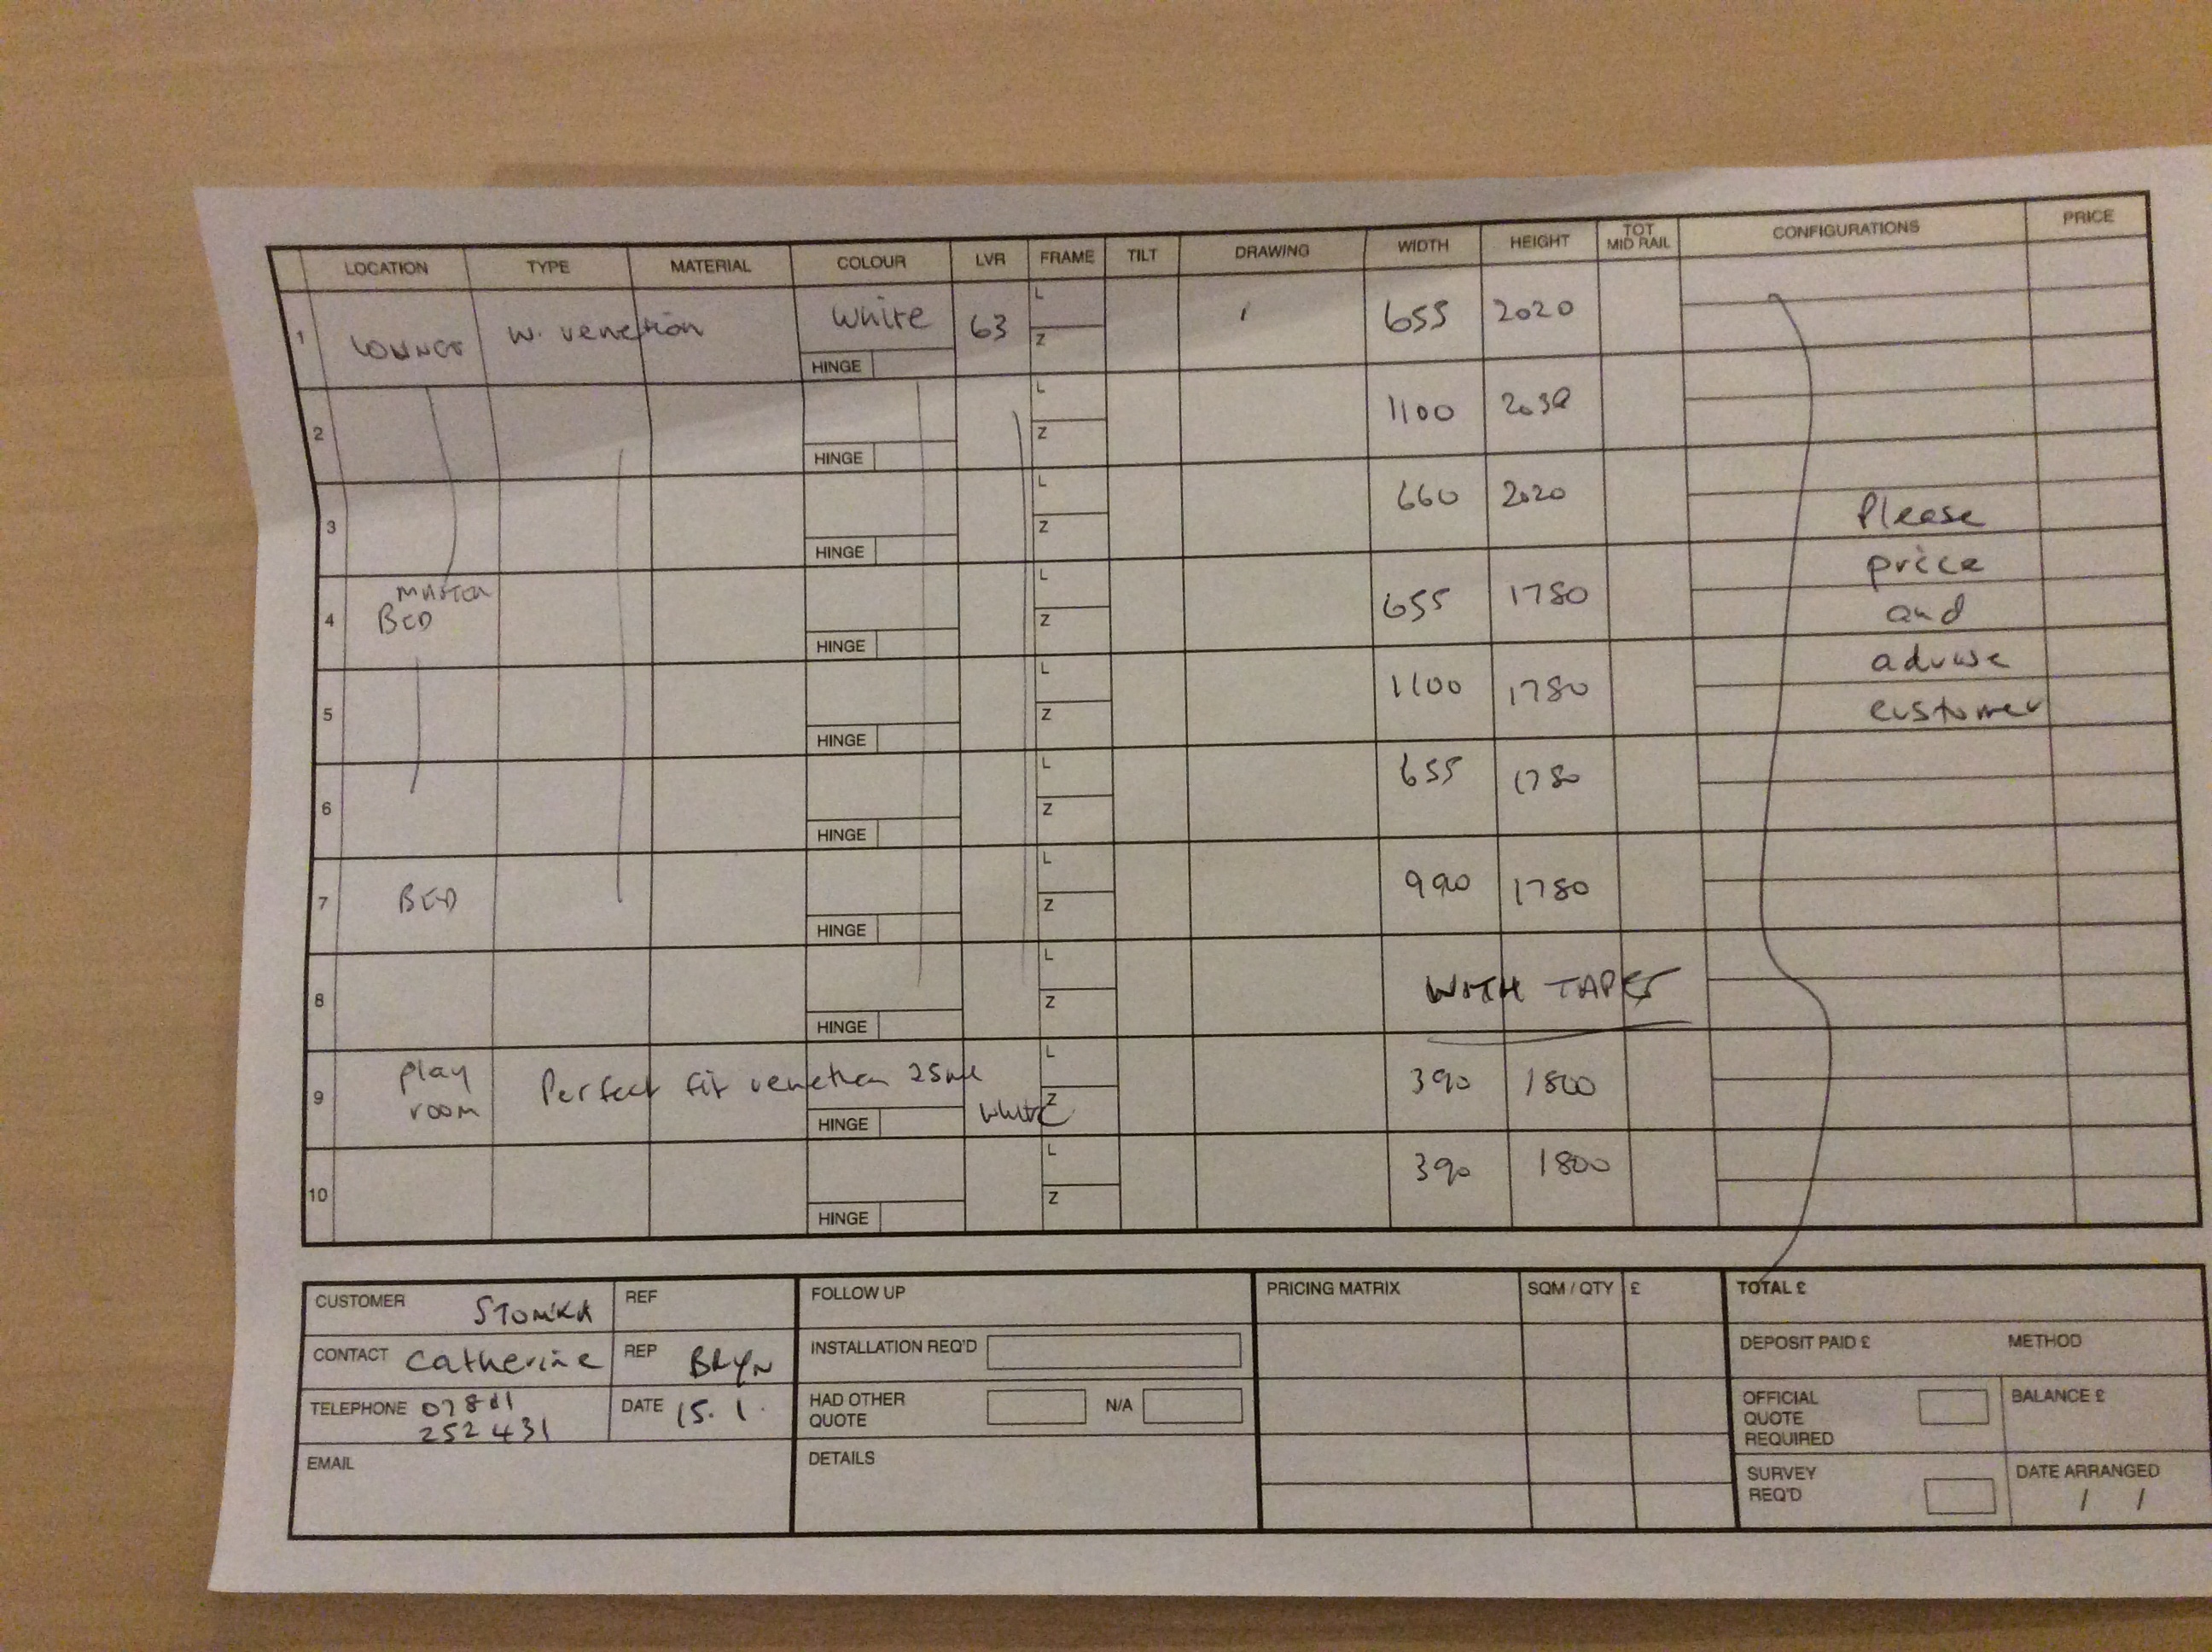 LOCATION TYPE MATERIAL COLOUR LVR FRAME TILT DRAWING WIDTH HEIGHT TOT MID RAIL CONFIGURATIONS PRICE
1 LOUNGE W. venetian White HINGE 63 L Z 655 2020
2 HINGE L Z 1100 2030
3 HINGE L Z 660 2020 Please
price
4 MASTER BED HINGE L Z 655 1780 and
advise
5 HINGE L Z 1100 1780 customer
6 HINGE L Z 655 1780
7 BED HINGE L Z 990 1780
8 HINGE L Z WITH TAPES
9 play room Perfect fit venetian 25ml HINGE white L Z 390 1800
10 HINGE L Z 390 1800
CUSTOMER
REF
CONTACT Catherine
REP BRYN
TELEPHONE
252 431
DATE 15. 1.
EMAIL
FOLLOW UP
INSTALLATION REQ'D
HAD OTHER QUOTE N/A
DETAILS
PRICING MATRIX SQM / QTY £
TOTAL £
DEPOSIT PAID £ METHOD
OFFICIAL QUOTE REQUIRED
BALANCE £
SURVEY REQ'D
DATE ARRANGED
/ /